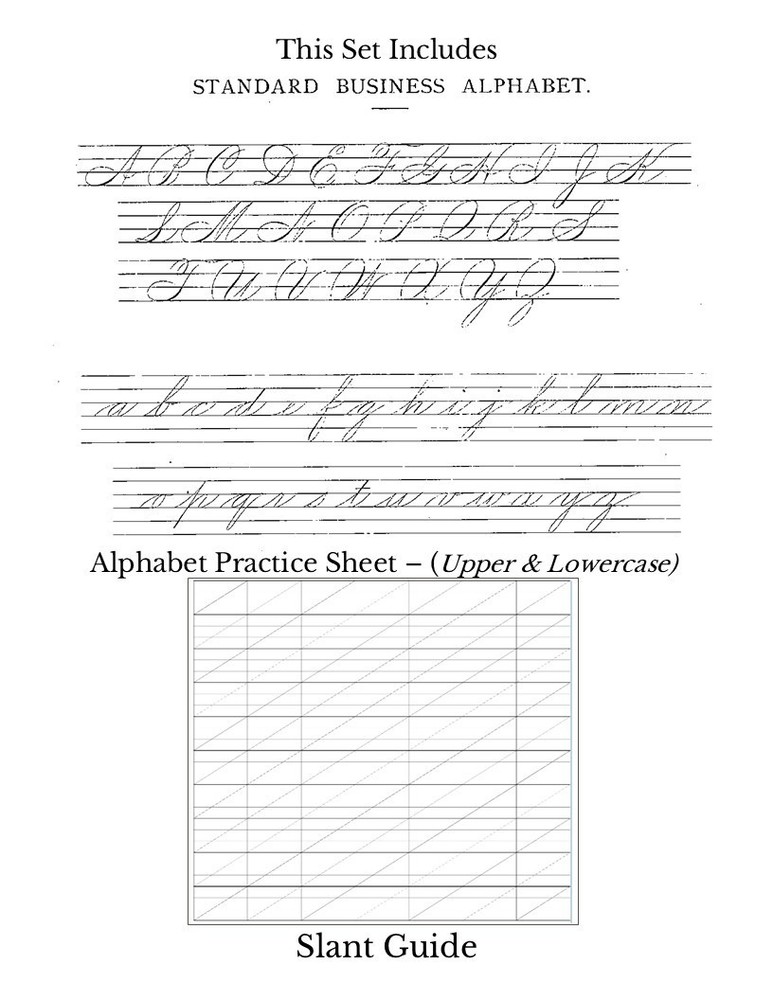 This Set Includes
STANDARD BUSINESS ALPHABET.
A B C D E F G H I J K
L M N O P Q R S
T U V W X Y Z
a b c d e f g h i j k l m n
o p q r s t u v w x y z
Alphabet Practice Sheet – (Upper & Lowercase)
Slant Guide